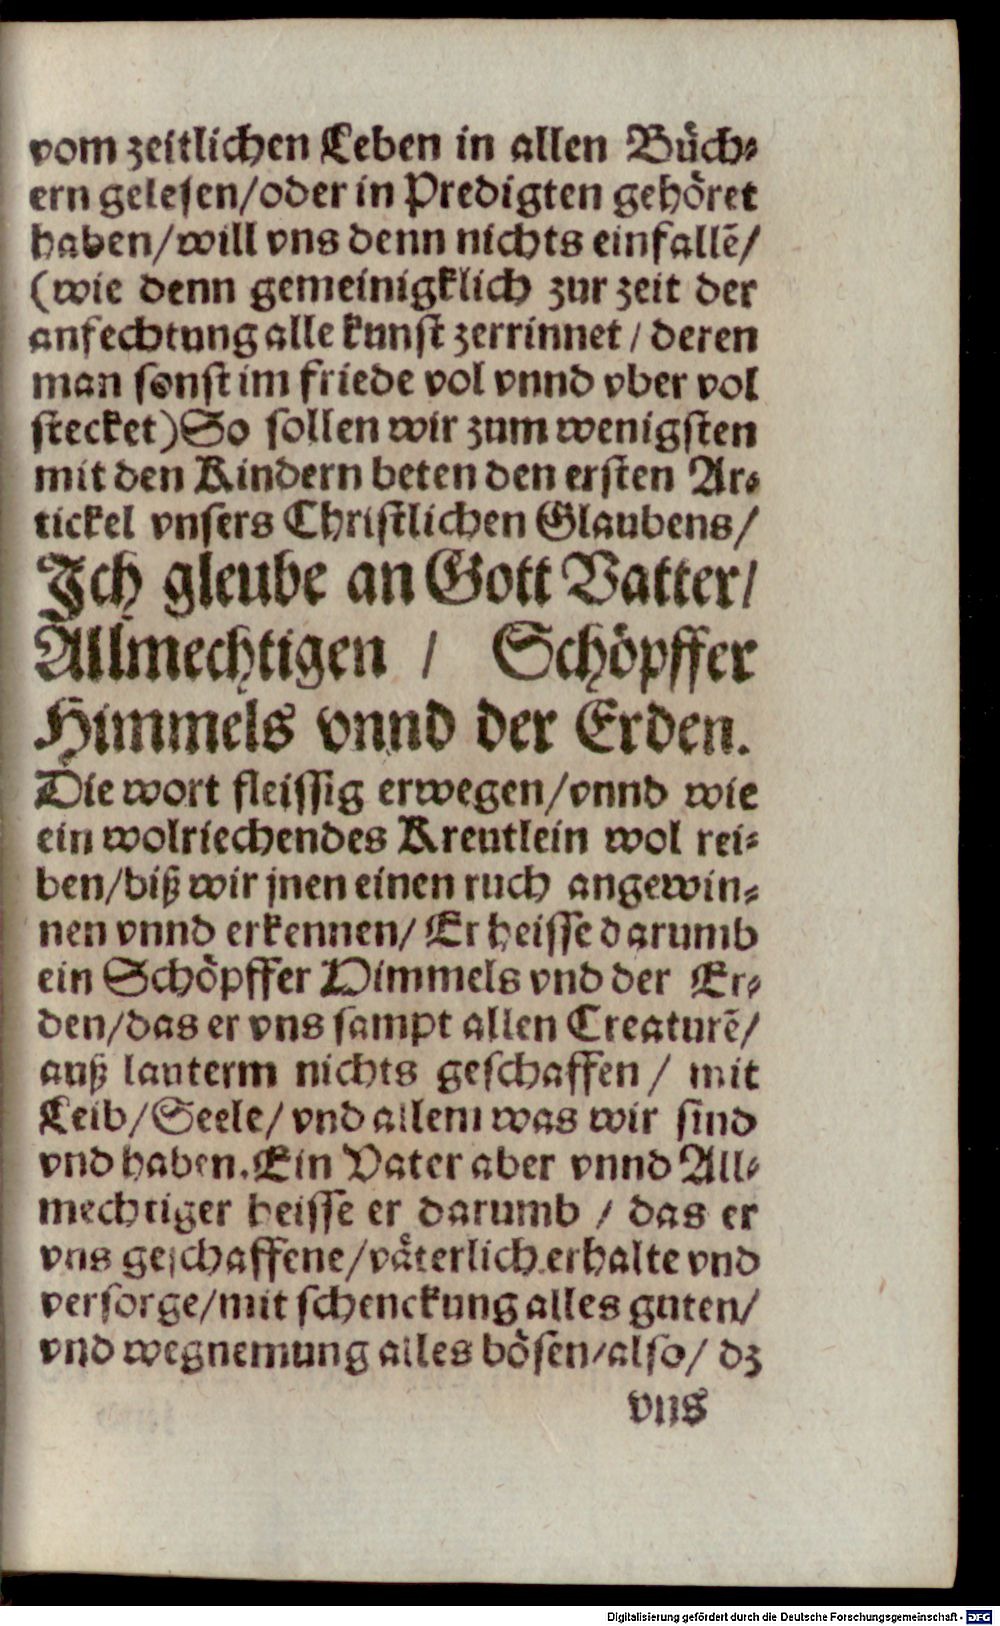 vom zeitlichen Leben in allen Bůch⸗
ern gelesen/oder in Predigten gehöret
haben/will vns denn nichts einfallẽ/
(wie denn gemeinigklich zur zeit der
anfechtung alle kunst zerrinnet / deren
man sonst im friede vol vnnd vber vol
stecket) So sollen wir zum wenigsten
mit den Kindern beten den ersten Ar⸗
tickel vnsers Christlichen Glaubens/
Ich gleube an Gott Vatter/
Allmechtigen / Schöpffer
Himmels vnnd der Erden.
Die wort fleissig erwegen/vnnd wie
ein wolriechendes Kreutlein wol rei⸗
ben/biß wir jnen einen ruch angewin⸗
nen vnnd erkennen/ Er heisse darumb
ein Schöpffer Himmels vnd der Er⸗
den/das er vns sampt allen Creaturẽ/
auß lauterm nichts geschaffen / mit
Leib/Seele/ vnd allem was wir sind
vnd haben. Ein Vater aber vnnd All⸗
mechtiger heisse er darumb / das er
vns geschaffene/väterlich erhalte vnd
versorge/mit schenckung alles guten/
vnd wegnemung alles bösen/also/ dz
vns
Digitalisierung gefördert durch die Deutsche Forschungsgemeinschaft - DFG